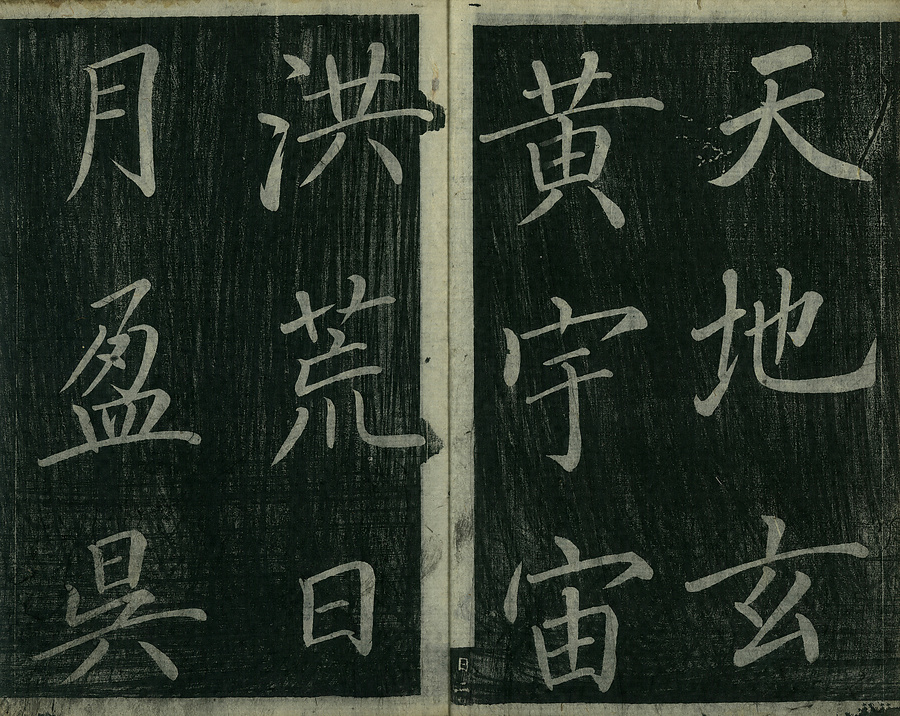 天地玄
黄宇宙
洪荒日
月盈昃